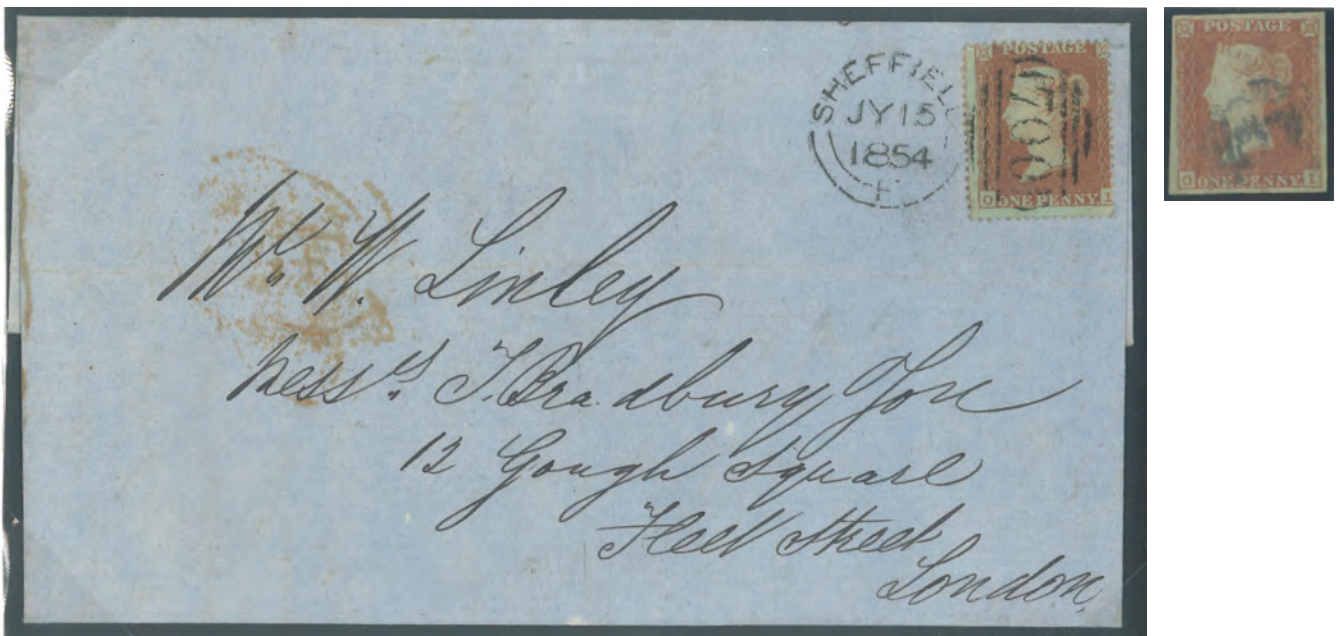 SHEFFIEL
JY 15
1854
POSTAGE
O ONE PENNY I
POSTAGE
O ONE PENNY I
Mr W. Linley
Messrs T. Bradbury & Son
12 Gough Square
Fleet Street
London